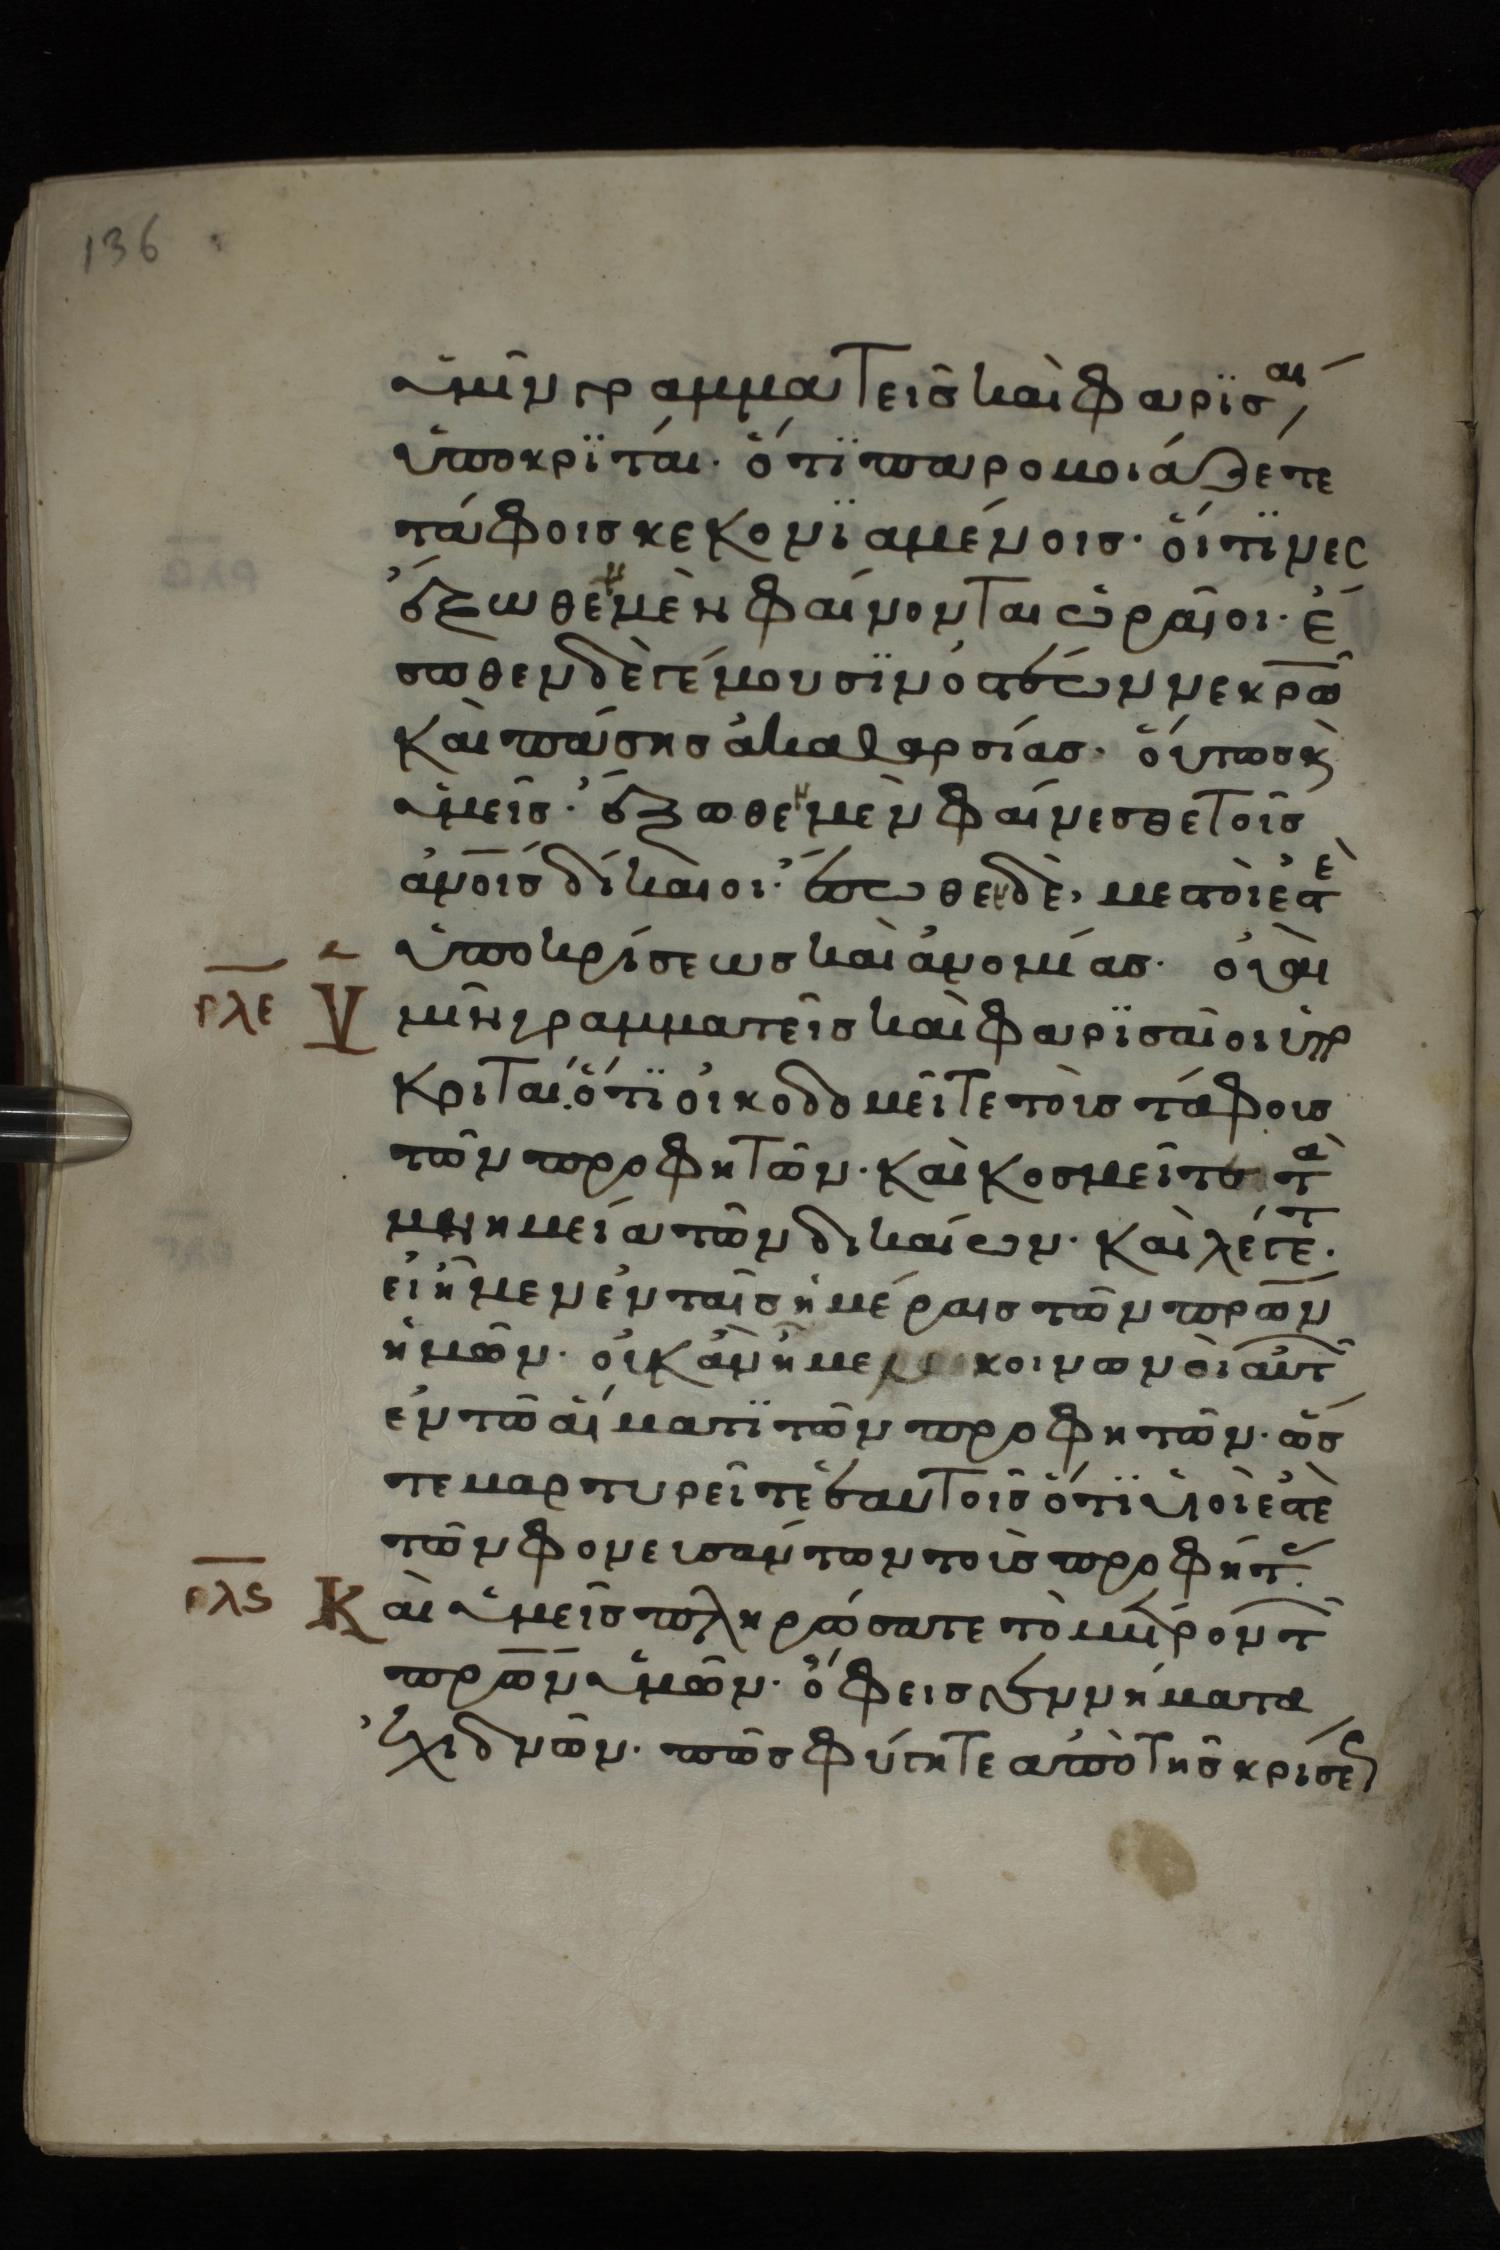 136
ὑμῖν γραμματεῖς καὶ φαρϊσαι
ὑποκρϊταί· ὅτϊ παρομοιάζετε
τάφοις κεκονϊαμένοις· οἵτϊνες
ἔξωθεν μὲν φαίνονται ὡραῖοι· ἔ
σωθεν δὲ γέμουσϊν ὀστέων νεκρῶ
καὶ πάσης ἀκαθαρσίας· οὕτως κ
ὑμεῖς· ἔξωθεν μὲν φαίνεσθε τοῖς
ἀνοις δίκαιοι· ἔσωθεν δὲ, μεστοὶ ἐστὲ
ὑποκρίσεως καὶ ἀνομίας· οὐαὶ
ρλε Ὑ μῖν γραμματεῖς καὶ φαρϊσαῖοι ὑπο
κριταί· ὅτϊ οἰκοδομεῖτε τοὺς τάφους
τῶν προφητῶν· καὶ κοσμεῖτε τὰ
μνημεία τῶν δικαίων· καὶ λέγετε·
εἰ ἦμεν ἐν ταῖς ἡμέραις τῶν πρων
ἡμῶν· οὐκ ἂν ἦμεν κοινωνοὶ αὐτ
ἐν τῶ αἵματϊ τῶν προφητῶν· ὥσ
τε μαρτυρεῖτε ἑαυτοῖς ὅτϊ υἱοὶ ἐστὲ
τῶν φονευσάντων τοὺς προφήτ·
ρλς Κ αὶ ὑμεῖς πληρώσατε τὸ μέτρον τ
πρων ὑμῶν· ὄφεις γεννήματα
ἐχιδνῶν· πῶς φύγητε ἀπὸ τῆς κρίσε